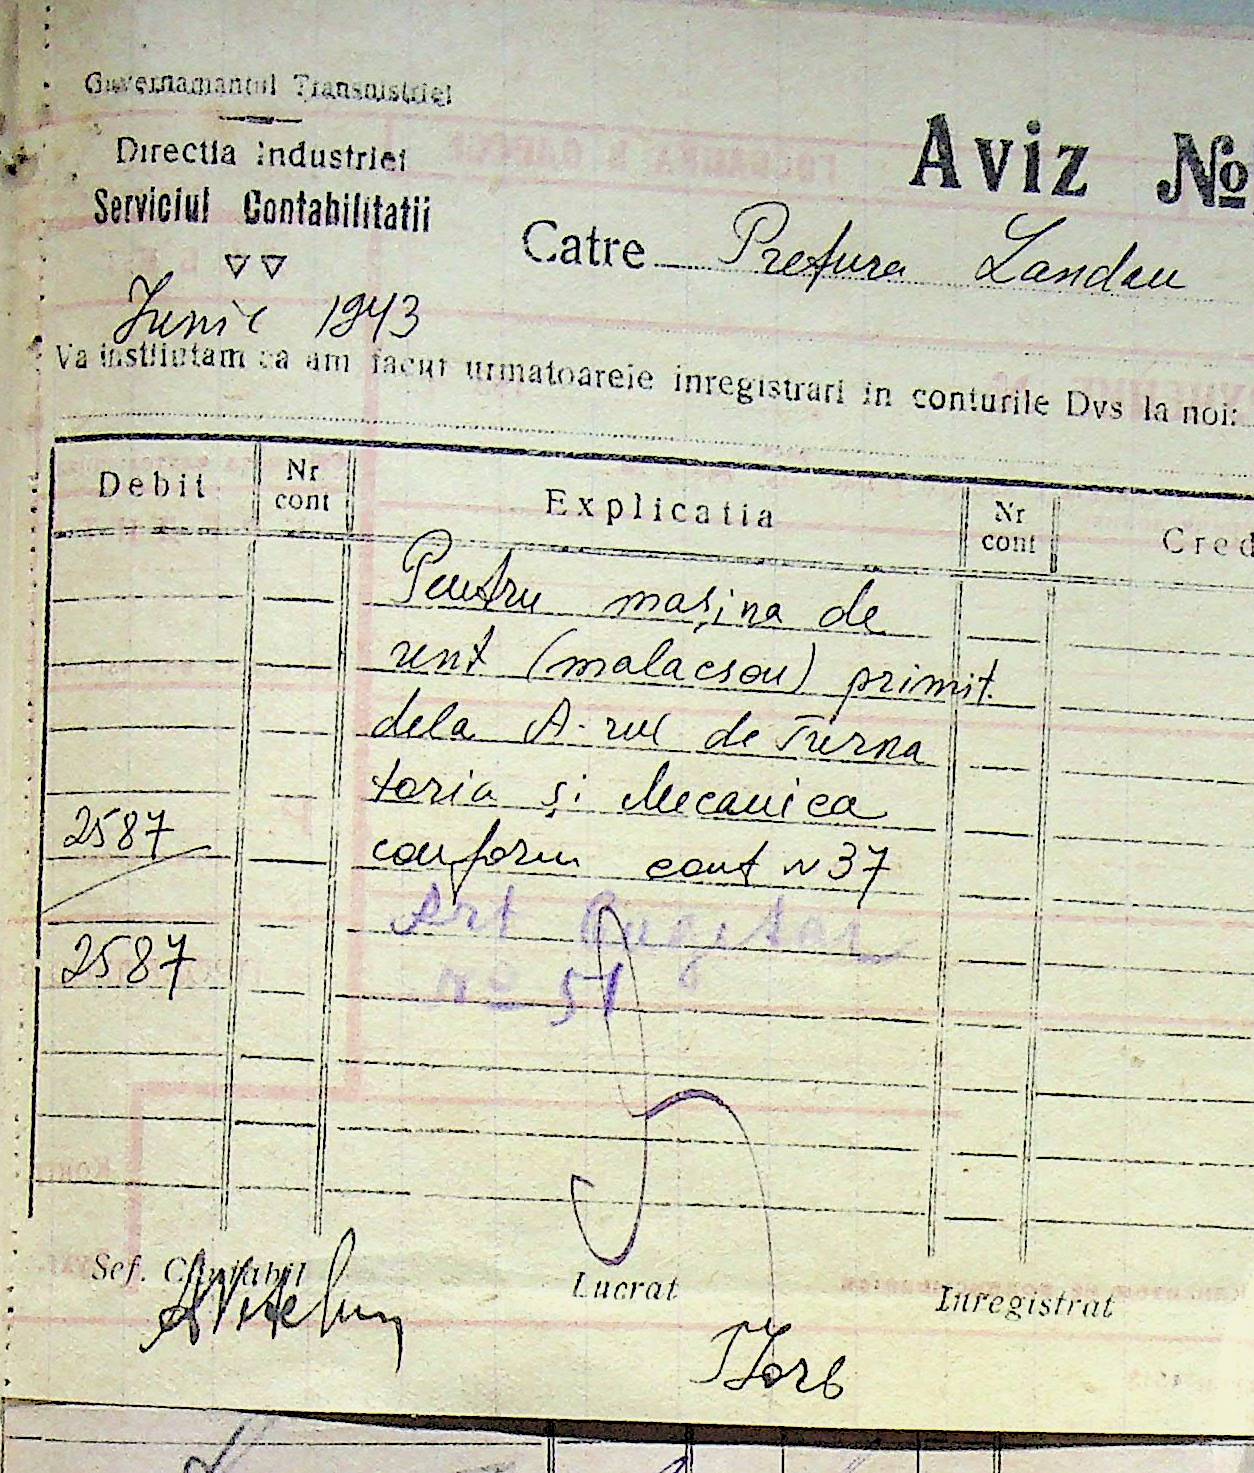 Guvernamantul Transnistriei
Directia Industriei
Serviciul Contabilitatii
Aviz №
Catre Pretura Landau
Junie 1943
Va instiintam ca am facut urmatoarele inregistrari in conturile Dvs la noi:
Debit Nr cont Explicatia Nr cont Cred
Pentru mașina de
unt (malacsou) primit
dela A-rul de Turna
toria și Mecanica
2587 conform cont N 37
Art
2587 № 51
Sef. Contabil Lucrat Inregistrat